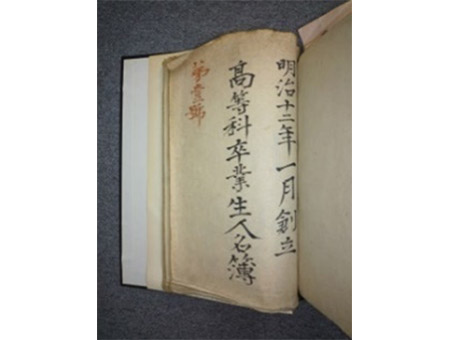 明治十二年一月創立
高等科卒業生人名簿
第壹號